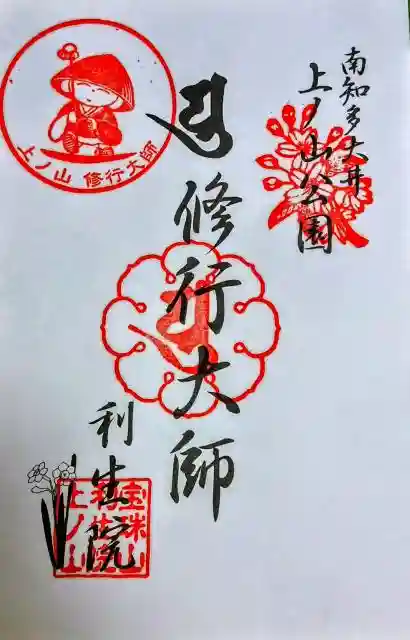 南知多大井
上ノ山公園
修行大師
利生院
上ノ山 修行大師
宝珠山
上ノ山